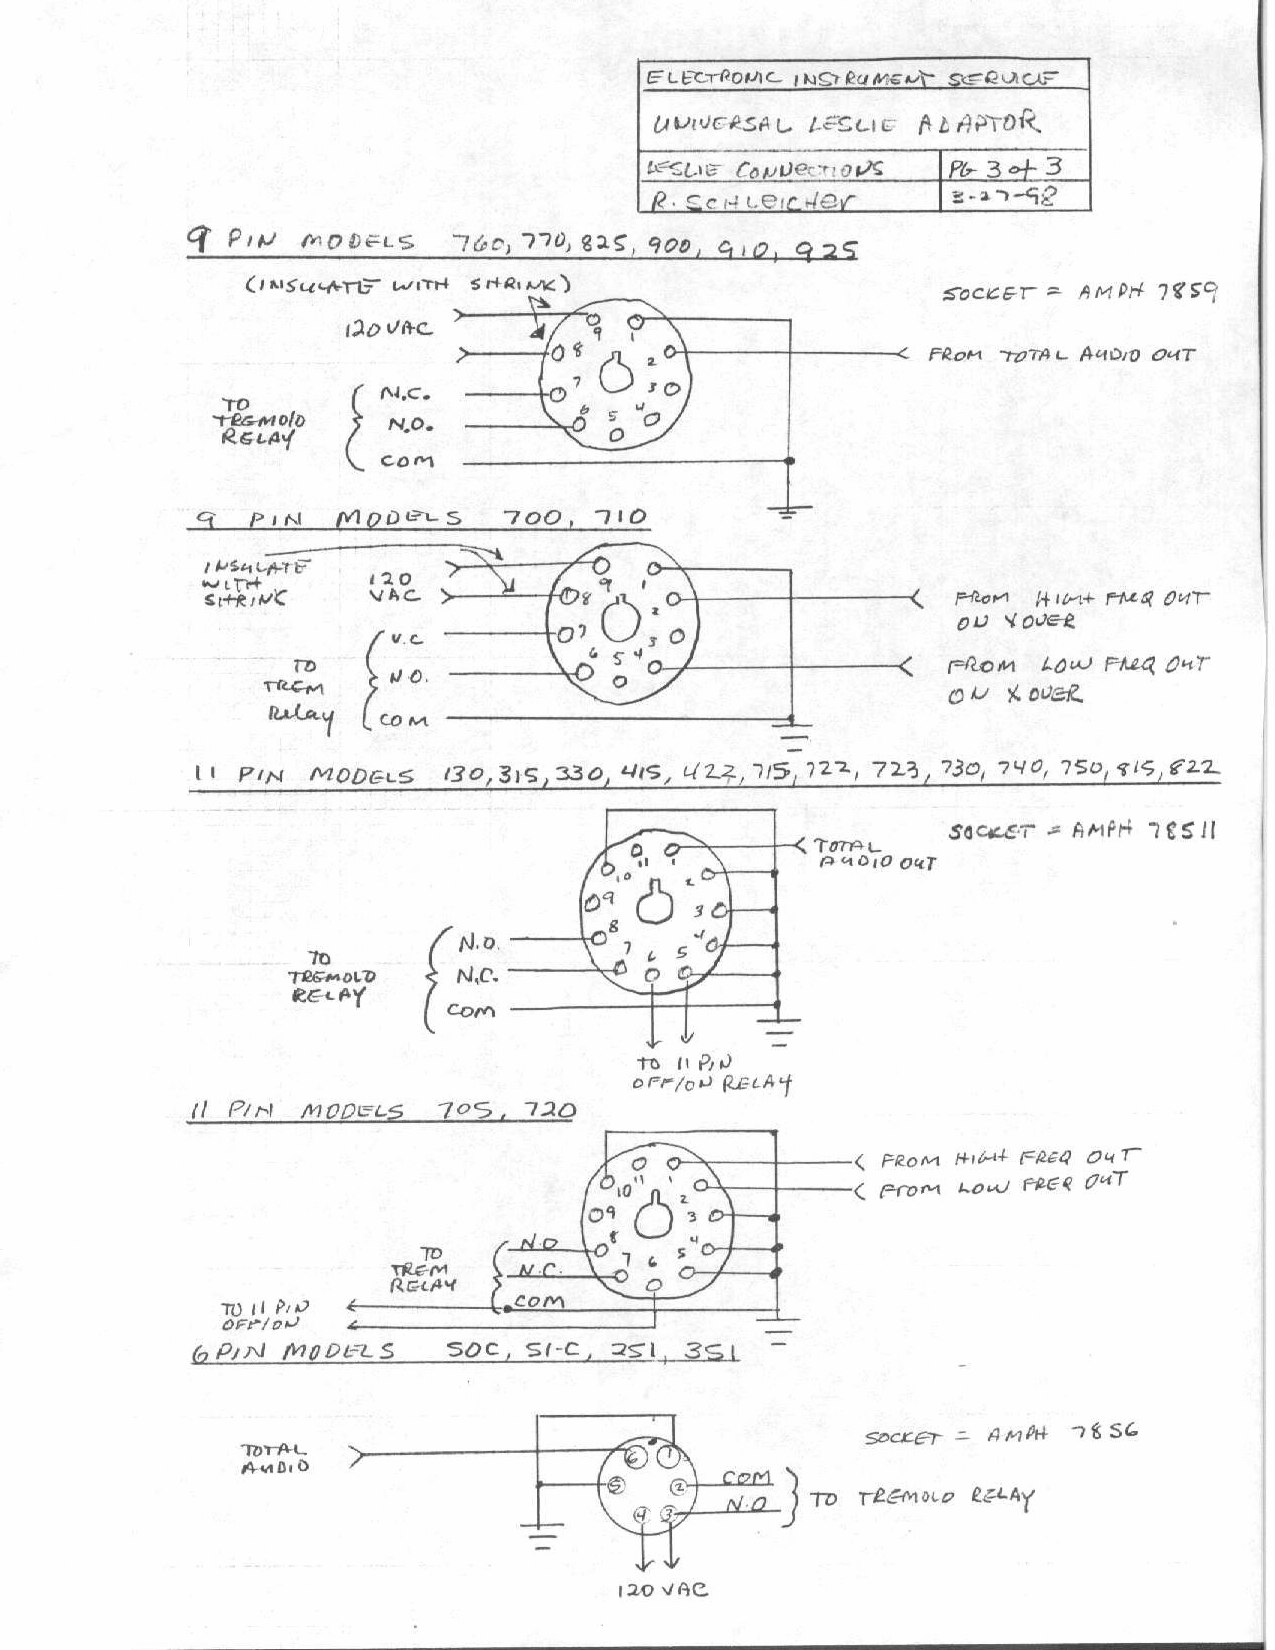 ELECTRONIC INSTRUMENT SERVICE
UNIVERSAL LESLIE ADAPTOR
LESLIE CONNECTIONS PG 3 of 3
R. SCHLEICHER 3-27-98
9 PIN MODELS 760, 770, 825, 900, 910, 925
(INSULATE WITH SHRINK)
SOCKET = AMPH 78S9
120 VAC
FROM TOTAL AUDIO OUT
9 1
8 2
7 3
6 5 4
TO
TREMOLO
RELAY
N.C.
N.O.
COM
9 PIN MODELS 700, 710
INSULATE
WITH
SHRINK
120
VAC
9 1
8 2
7 3
6 5 4
FROM HIGH FREQ OUT
ON XOVER
FROM LOW FREQ OUT
ON XOVER
TO
TREM
Relay
N.C
N.O.
COM
11 PIN MODELS 130, 315, 330, 415, 422, 715, 722, 723, 730, 740, 750, 815, 822
SOCKET = AMPH 78S11
TOTAL
AUDIO OUT
11 1
10 2
9 3
8 4
7 6 5
TO
TREMOLO
RELAY
N.O.
N.C.
COM
TO 11 PIN
OFF/ON RELAY
11 PIN MODELS 705, 720
FROM HIGH FREQ OUT
FROM LOW FREQ OUT
11 1
10 2
9 3
8 4
7 6 5
TO
TREM
RELAY
N.O
N.C.
COM
TO 11 PIN
OFF/ON
6 PIN MODELS 50C, 51-C, 251, 351
SOCKET = AMPH 78S6
TOTAL
AUDIO
6 1
5 2
4 3
COM
N.O
TO TREMOLO RELAY
120 VAC